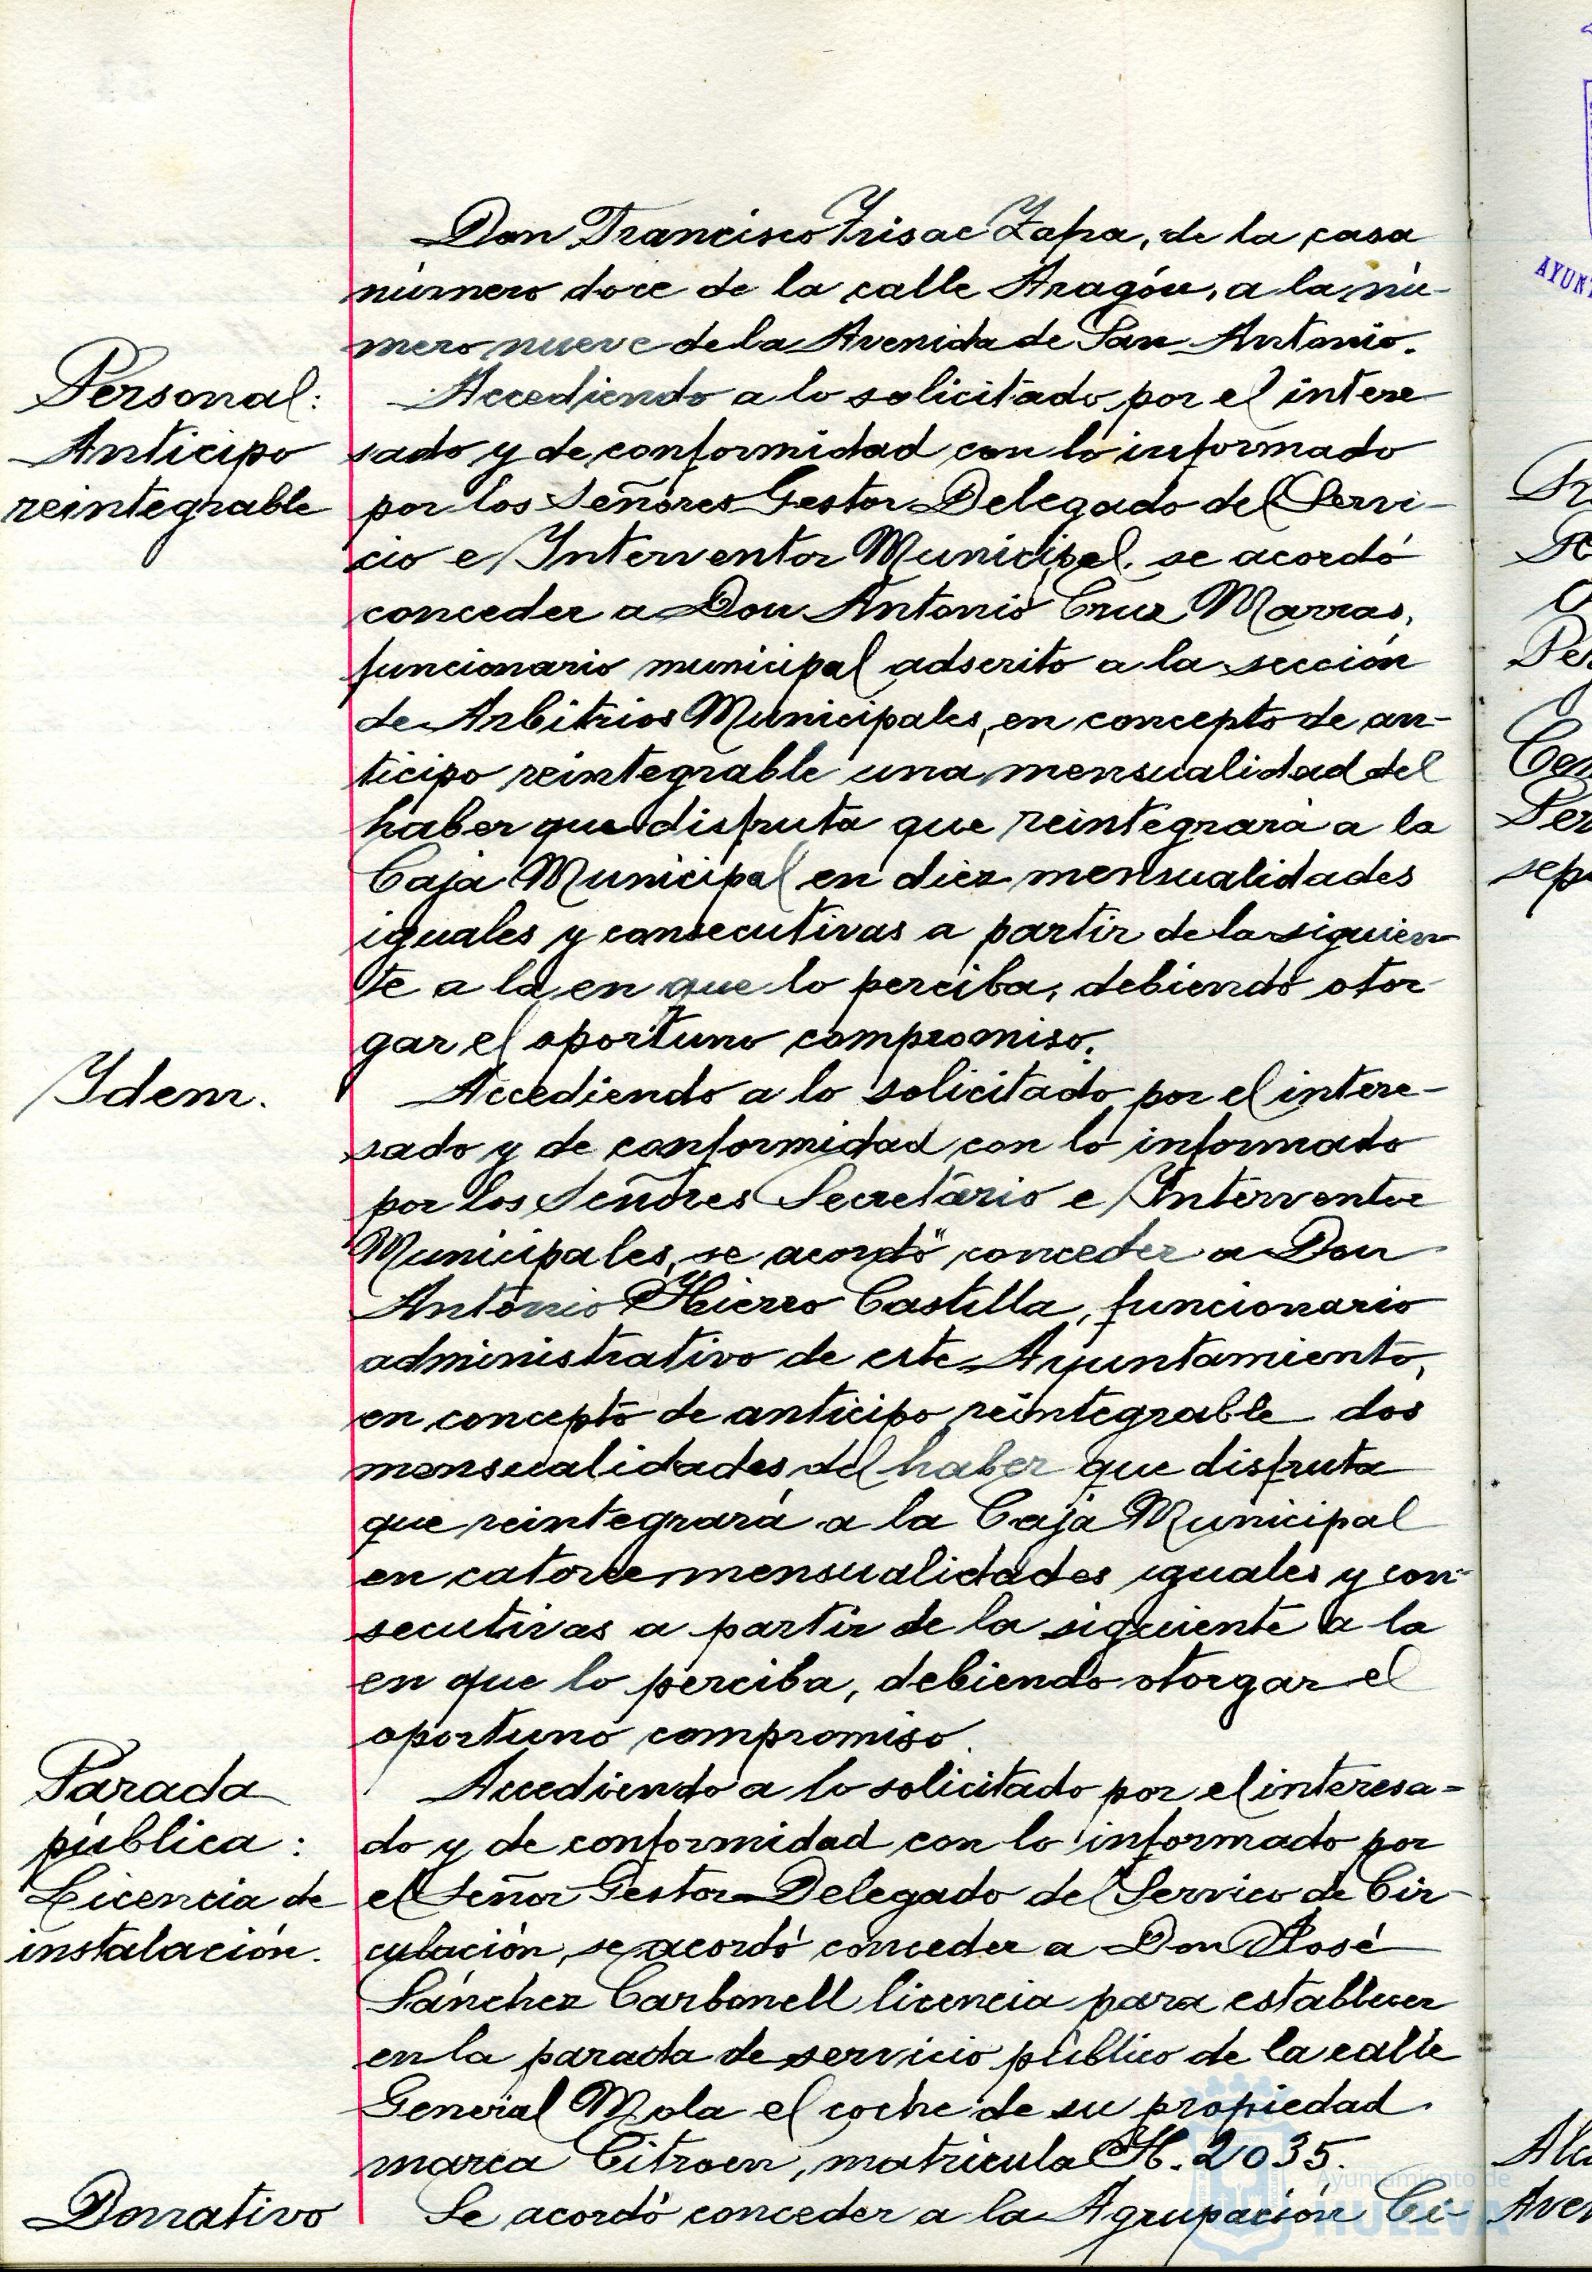 Don Francisco Yrisac Zapa, de la casa
número doce de la calle Aragón, a la nú-
mero nueve de la Avenida de San Antonio.
Personal:
Anticipo
reintegrable
Accediendo a lo solicitado por el intere
sado y de conformidad con lo informado
por los Señores Gestor Delegado del Servi-
cio e Interventor Municipal, se acordó
conceder a Don Antonio Cruz Marras,
funcionario municipal adscrito a la sección
de Arbitrios Municipales, en concepto de an-
ticipo reintegrable una mensualidad del
haber que disfruta que reintegrará a la
Caja Municipal en diez mensualidades
iguales y consecutivas a partir de la siguien
te a la en que lo perciba, debiendo otor
gar el oportuno compromiso.
Ydem.
Accediendo a lo solicitado por el intere-
sado y de conformidad con lo informado
por los Señores Secretario e Interventor
Municipales, se acordó conceder a Don
Antonio Hierro Castilla, funcionario
administrativo de este Ayuntamiento,
en concepto de anticipo reintegrable dos
mensualidades del haber que disfruta
que reintegrará a la Caja Municipal
en catorce mensualidades iguales y con-
secutivas a partir de la siguiente a la
en que lo perciba, debiendo otorgar el
oportuno compromiso.
Parada
pública:
Licencia de
instalación.
Accediendo a lo solicitado por el interesa-
do y de conformidad con lo informado por
el Señor Gestor Delegado del Servicio de Cir-
culación, se acordó conceder a Don José
Sánchez Carbonell licencia para establecer
en la parada de servicio público de la calle
General Mola el coche de su propiedad
marca Citroen, matrícula H. 2035.
Donativo
Se acordó conceder a la Agrupación Ci-
Ayuntamiento de
HUELVA